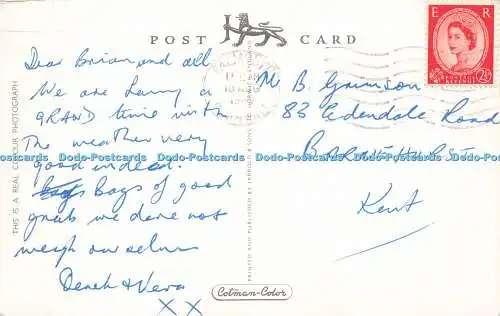 POST CARD
E R
POSTAGE REVENUE
2½D
Dear Brian and all
We are having a
GRAND time with
The weather very
good indeed.
Bags of good
grub we dare not
weigh ourselves
Derek & Vera
X X
Mr B Grimson
83 Edendale Road
BARNEHURST
Kent
THIS IS A REAL COLOUR PHOTOGRAPH
PRINTED AND PUBLISHED BY JARROLD & SONS LTD
Colman-Color
Dodo-Postcards Dodo-Postcards Dodo-Postcards Dodo-Postcards Dodo-Postcards Dodo-Postcards